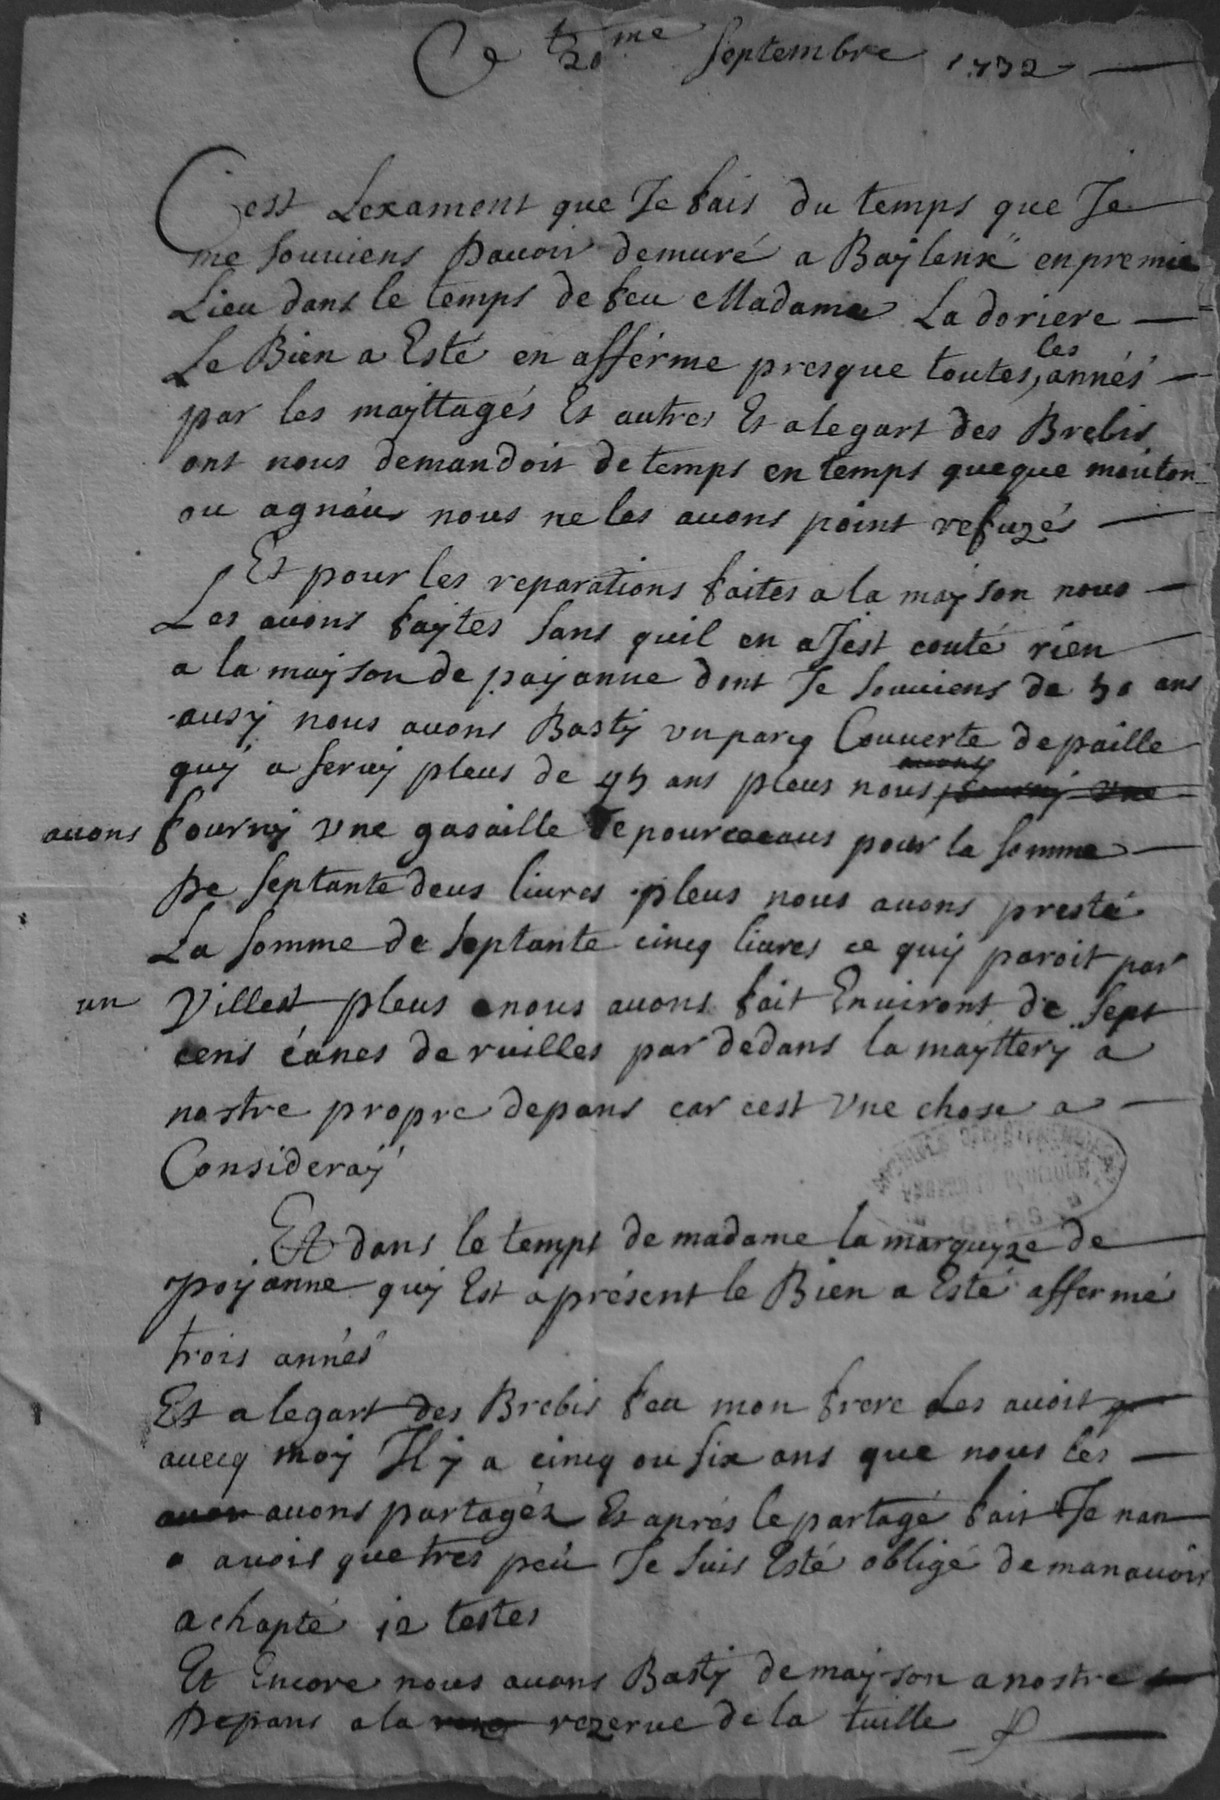 Ce 20me Septembre 1732
Cest Lexamont que Je fais du temps que Je
me souuiens Dauoir demuré a Baylenx en premie
Lieu dans le temps de feu Madame La doriere
Le Bien a Esté en afférme presque toutes les annés
par les mayttagés Et autres Et alegart des Brebis
ont nous demandoit de temps en temps queque mouton
ou agnáus nous ne les auons point refuzés
Et pour les reparations faites a la mayson nous
Les auons faytes sans quil en aJest couté rien
a la mayson de payanne dont Je souuiens de 50 ans
ausy nous auons Basty vn parq Couuerte de paille
quy a seruy pleus de 45 ans pleus nous auons fourny vne
auons fourny vne gasaille de pourceaus pour la somme
De septante deus liures pleus nous auons presté
La somme de septante cincq liures ce quy paroit par
un Billest pleus nous auons fait Enuiront de sept
cens cánes de ruilles par dedans la mayttery a
nostre propre depans car cest vne chose a
Consideray
Et dans le temps de madame la marquyze de
poyanne quy Est aprésent le Bien a Esté affermé
trois annés
Et a legart des Brebis feu mon frere Les auoit
auecq moy Il y a cincq ou six ans que nous les
auons partagés Et aprés le partagé fait Je nan
auois que tres peu Je suis Esté obligé de manauoir
achapté 12 testes
Et Encore nous auons Basty de mayson a nostre
Depans a la rezerue de la tuille
ARCHIVES DEPARTEMENTALES
GERS